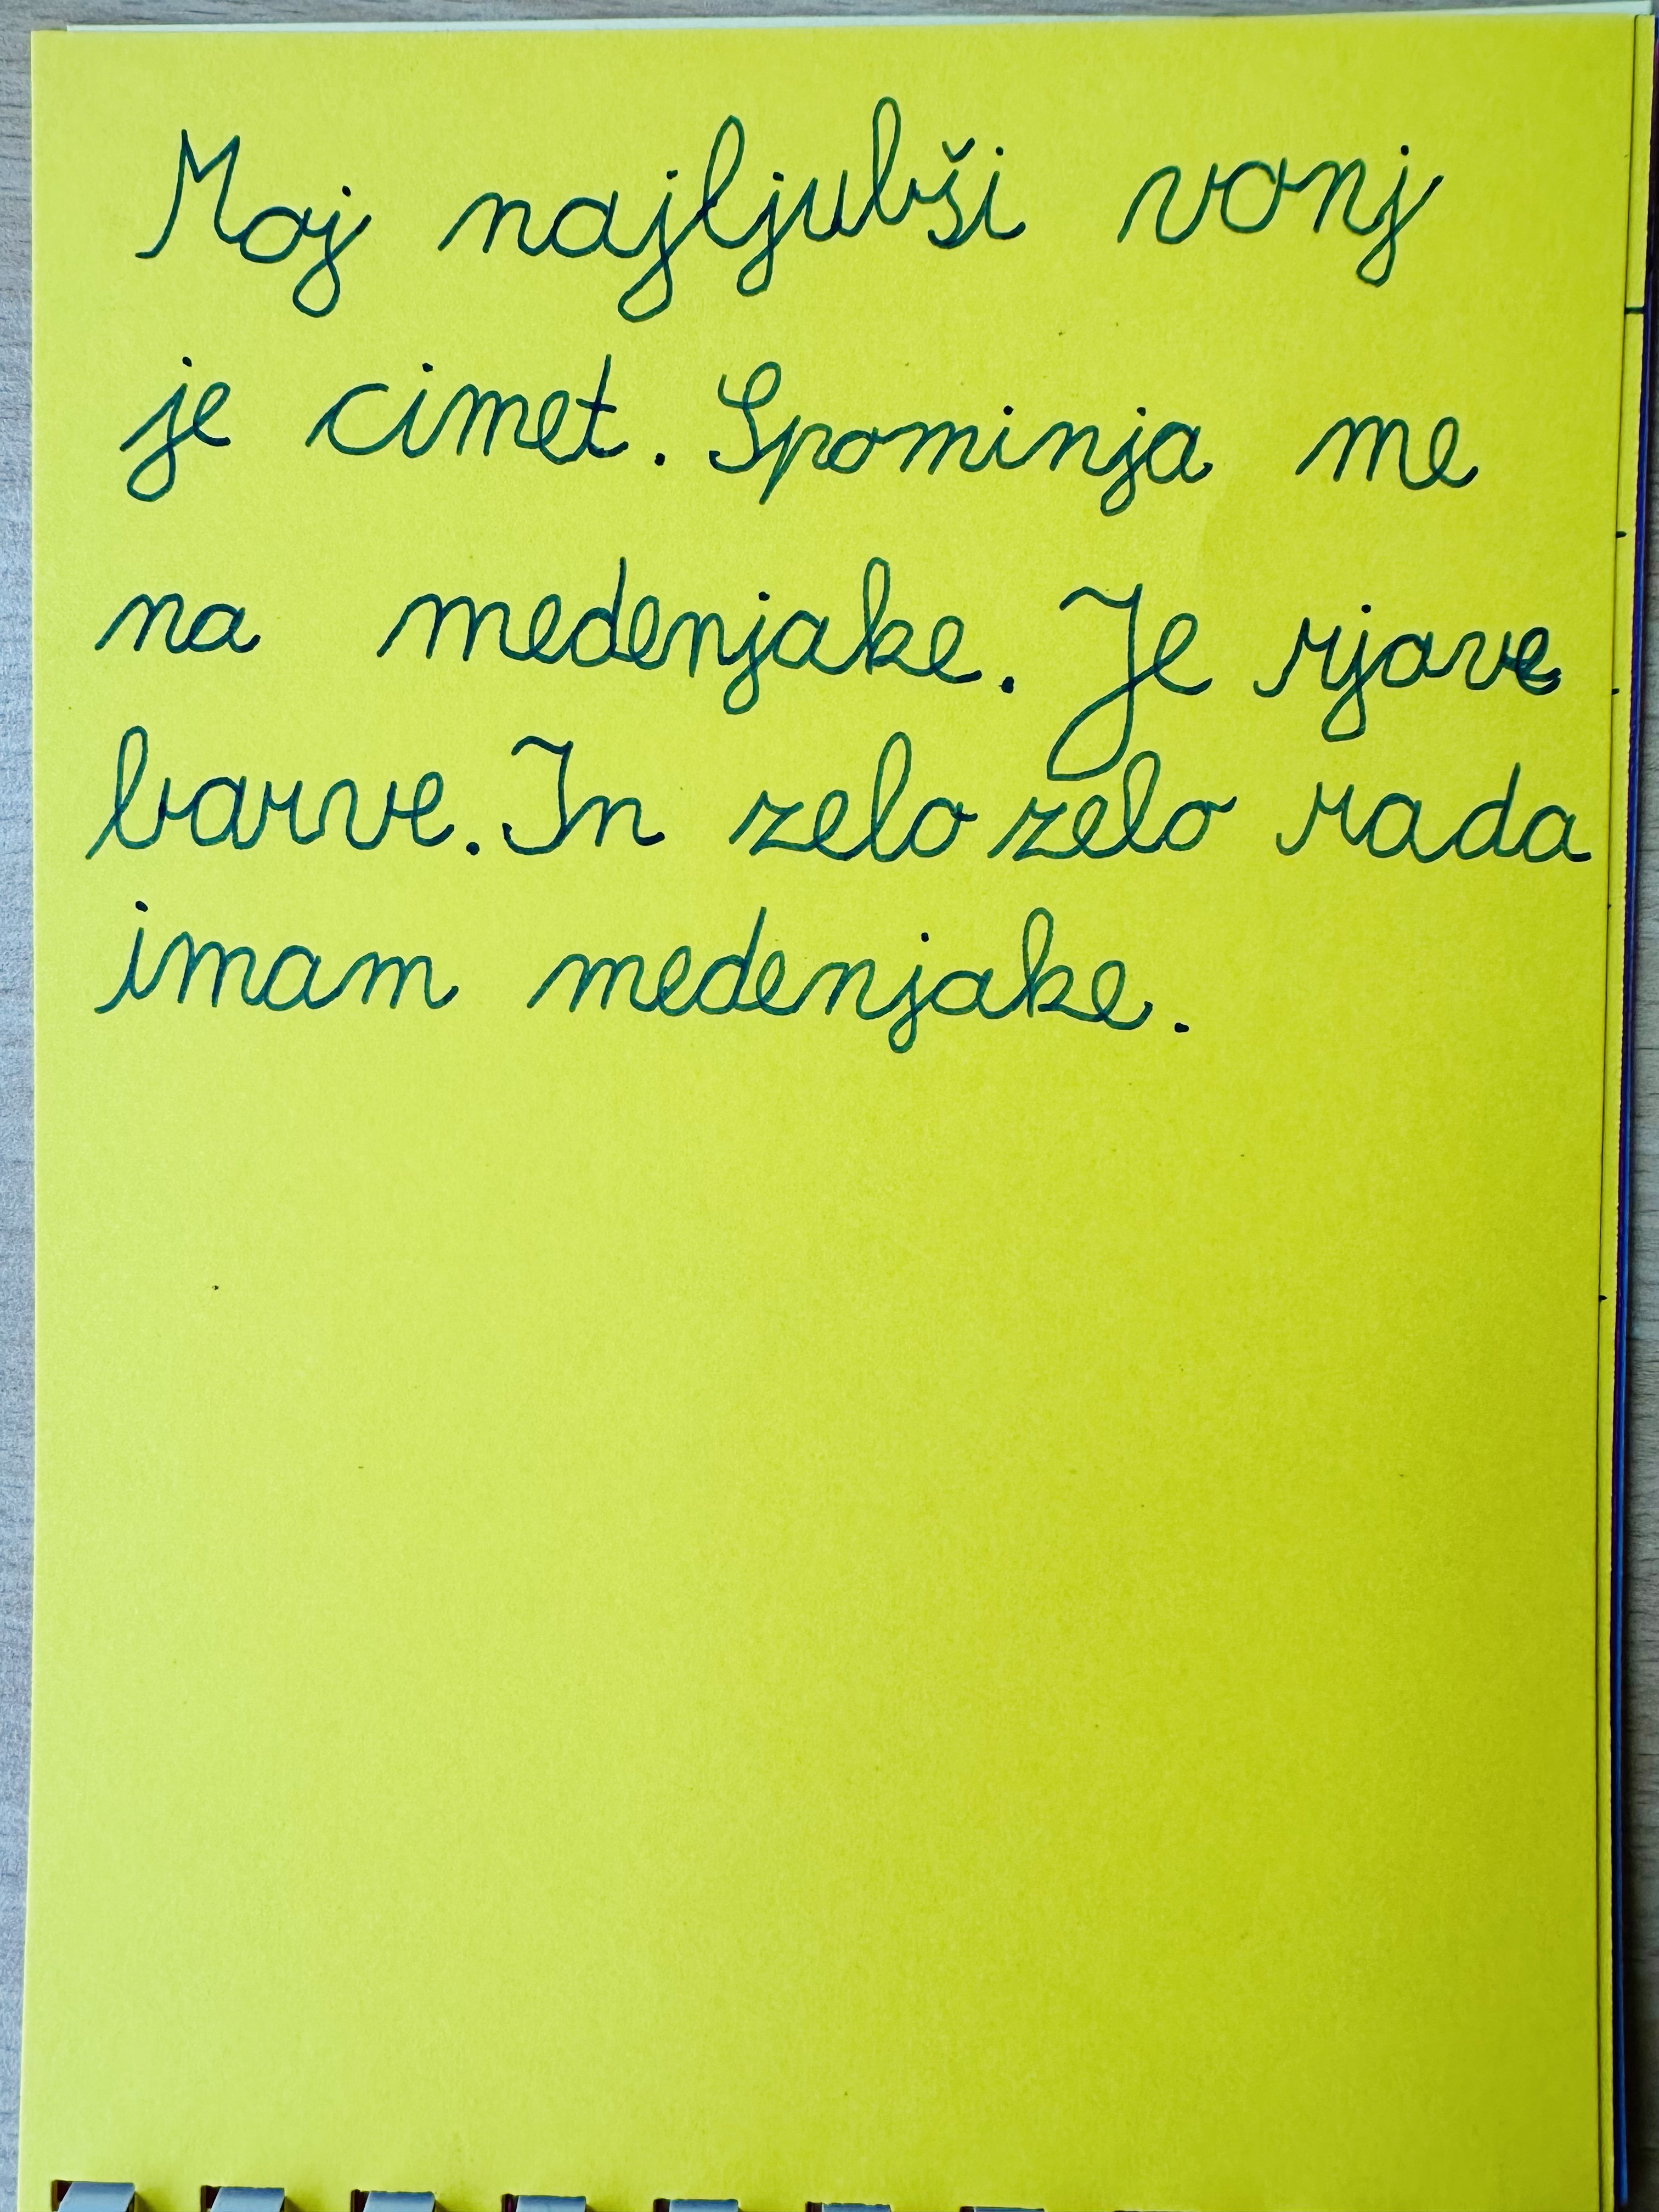 Moj najljubši vonj
je cimet. Spominja me
na medenjake. Je rjave
barve. In zelo zelo rada
imam medenjake.